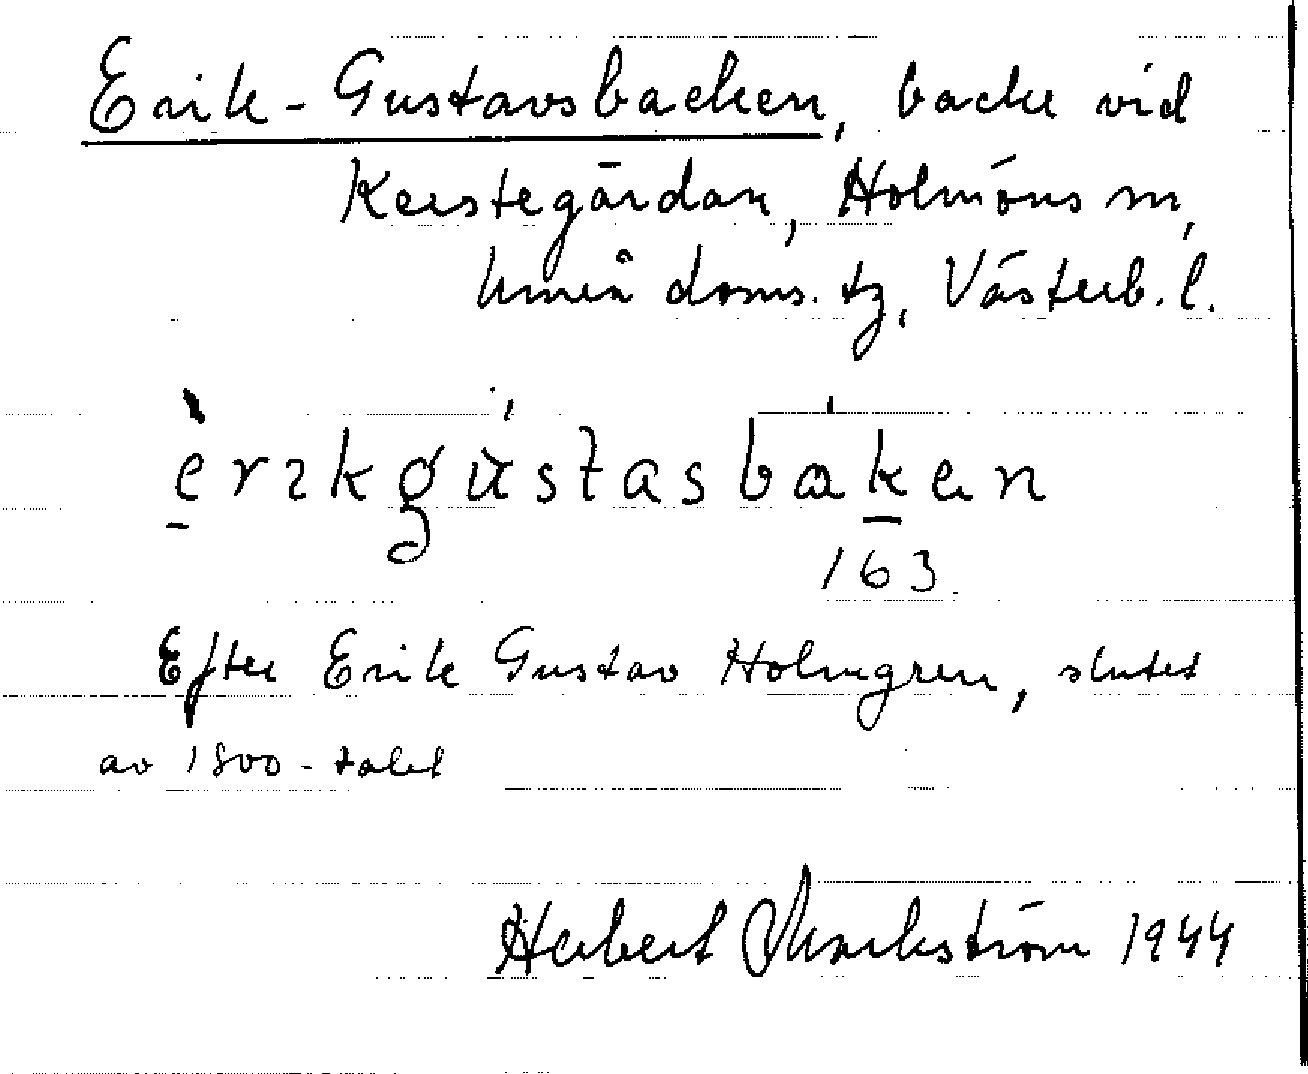 Erik-Gustavsbacken, backe vid
Kerstegärdan, Holmöns sn,
Umeå doms. tz, Västerb. l.
èrɩkgústasbakɐn
163
Efter Erik Gustav Holmgren, slutet
av 1800-talet
Herbert Markström 1944